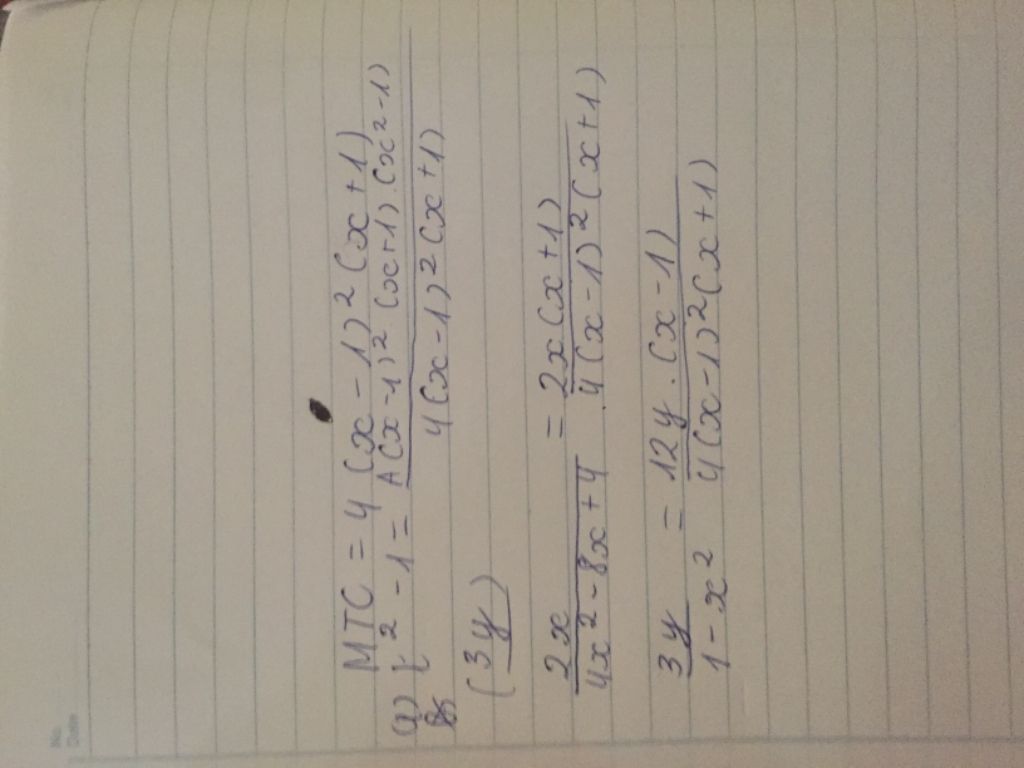 No.
Date
MTC = 4 (x - 1)² (x + 1)
a) x² - 1 = 4(x - 1)² (x + 1) . (x² - 1) / 4(x - 1)² (x + 1)
(3y)
2x / 4x² - 8x + 4 = 2x(x + 1) / 4(x - 1)² (x + 1)
3y / 1 - x² = 12y . (x - 1) / 4(x - 1)²(x + 1)